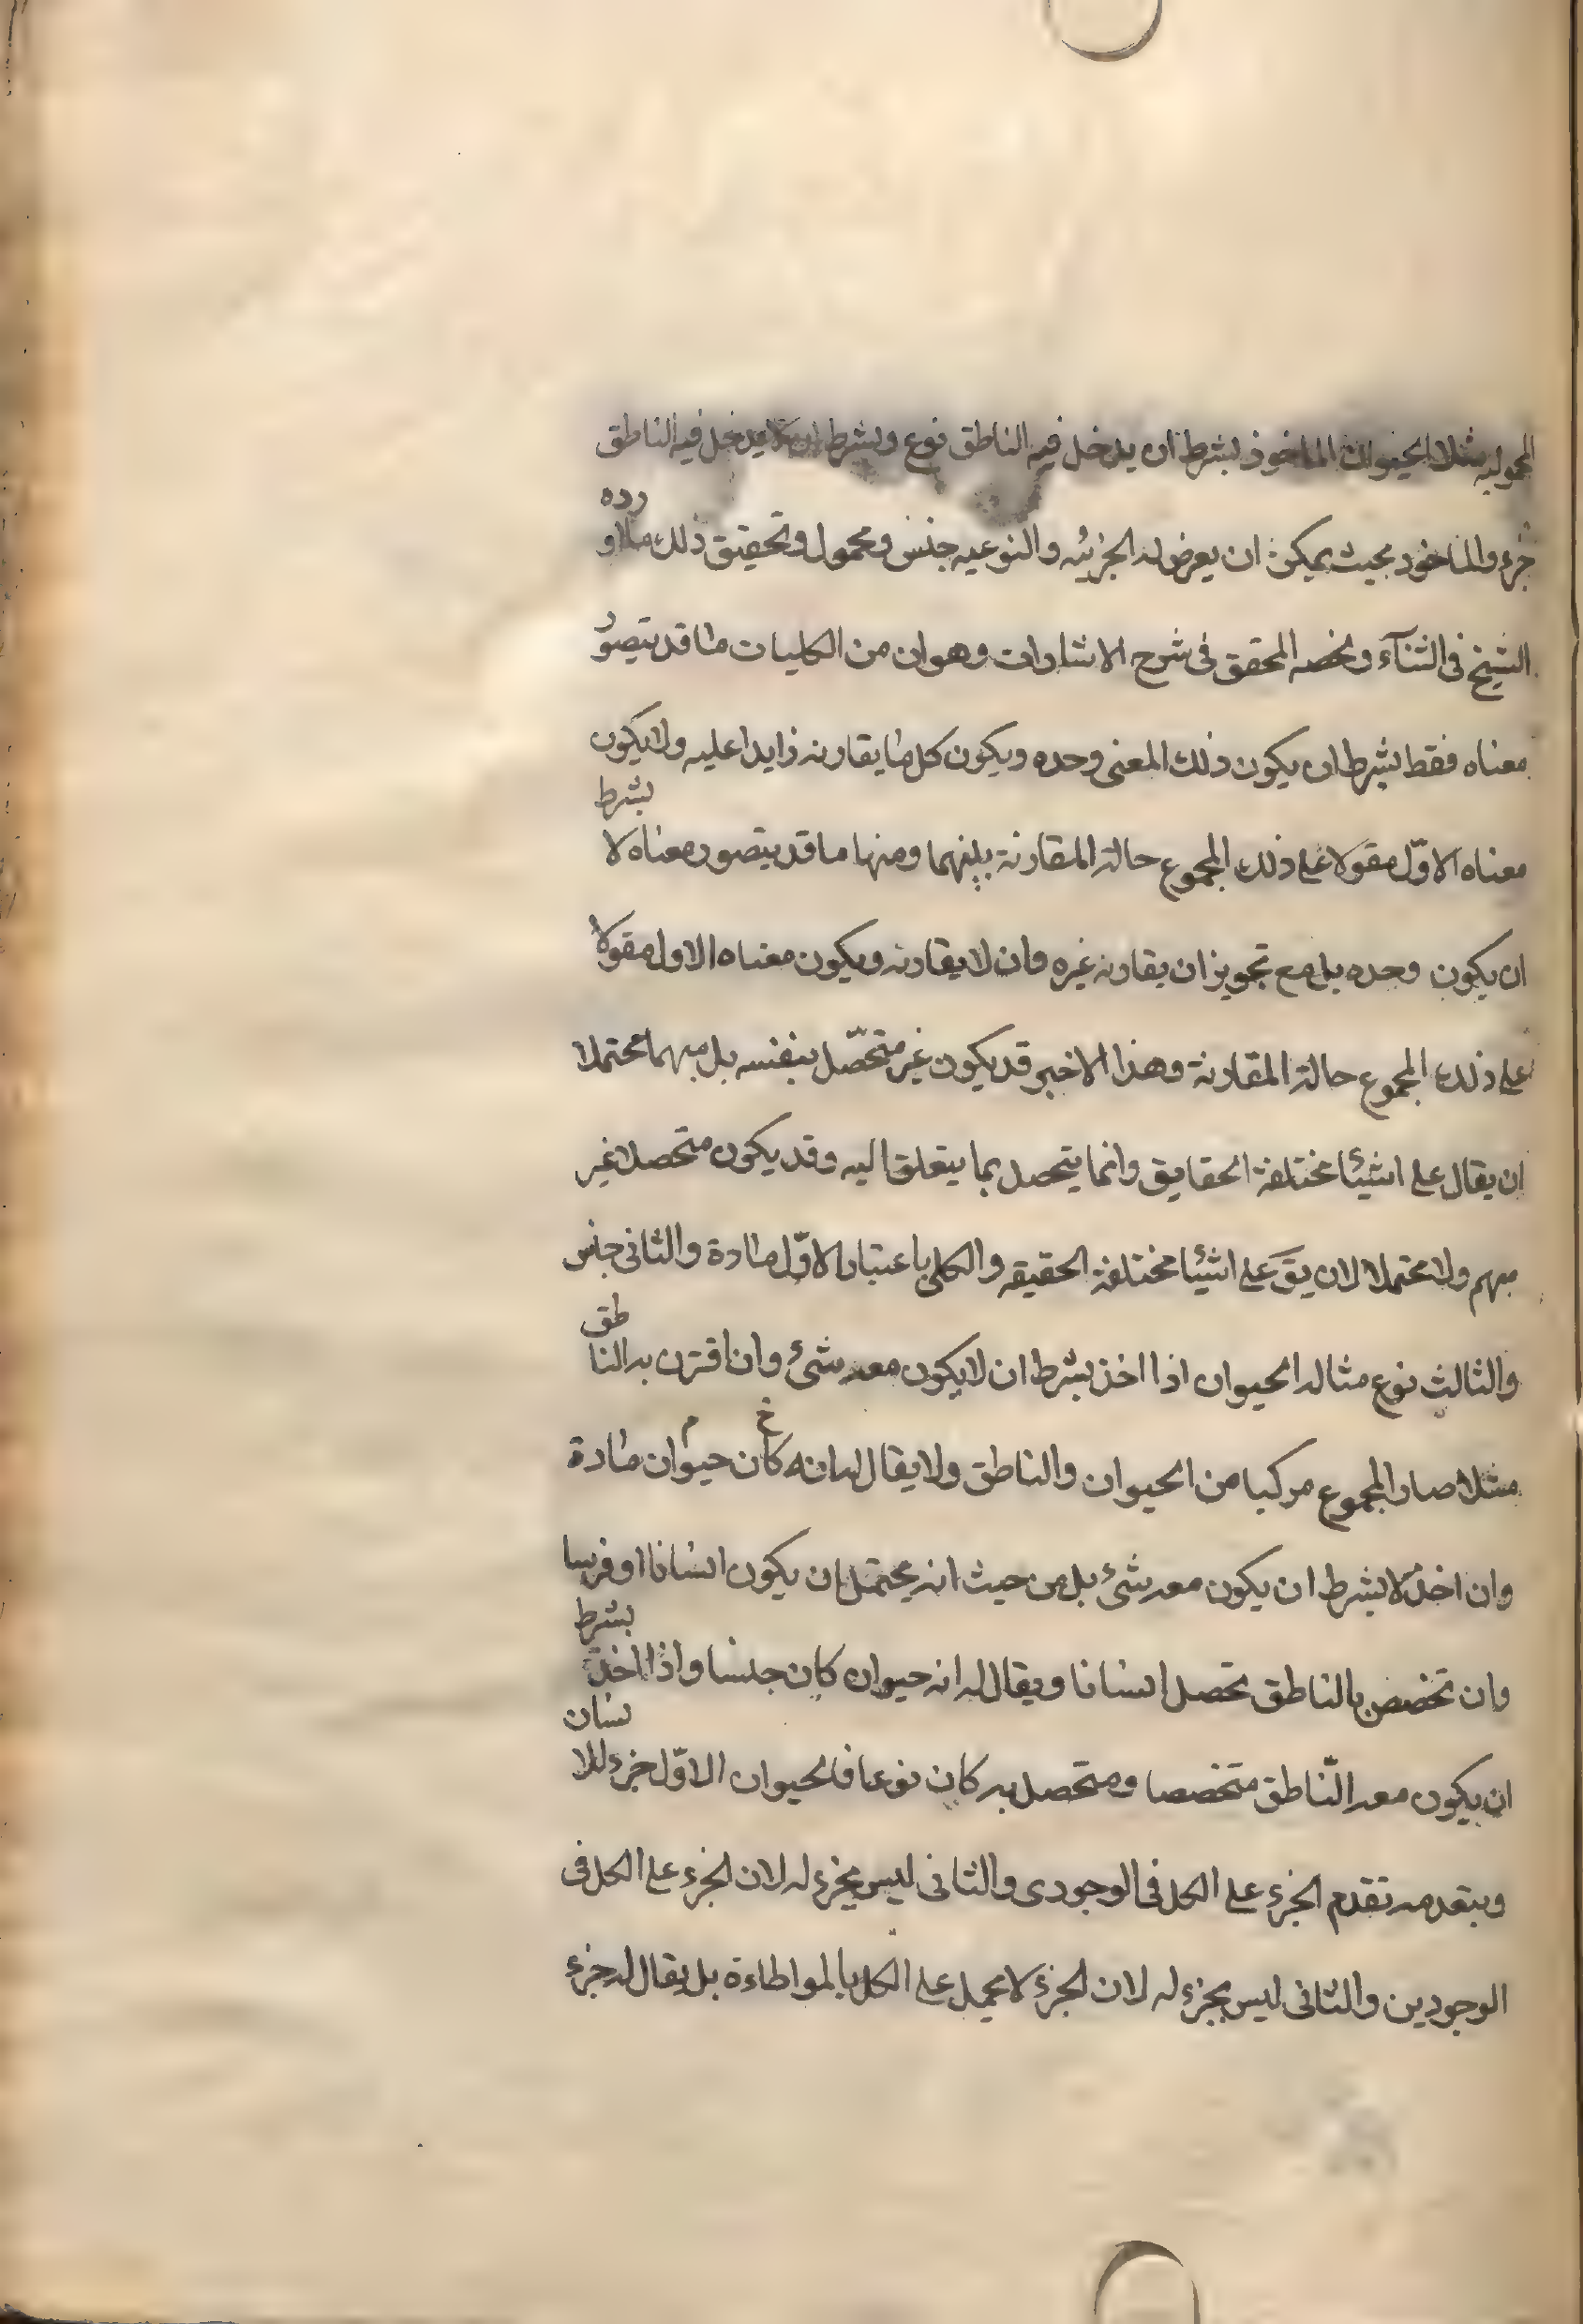 المحموليه مثلا الحيوان الماخوذ بشرط ان يدخل فيه الناطق نوع وبشرط ان لا يدخل فيه الناطق
جزء والماخود بحيث يمكن ان يعرض له الجزئيه والنوعيه جنس ومحمول وتحقيق ذلك ما اورده
الشيخ فى الشفآء ولخصه المحقق فى شرح الاشارات وهو ان من الكليات ما قد يتصور
معناه فقط بشرط ان يكون ذلك المعنى وحده ويكون كل ما يقارنه زايدا عليه ولا يكون
معناه الاوّل مقولا على ذلك المجموع حالة المقارنة بينهما ومنها ما قد يتصور معناه لا بشرط
ان يكون وحده بل مع تجويز ان يقارنه غيره وان لا يقارنه ويكون معناه الاول مقولا
على ذلك المجموع حالة المقارنة وهذا الاخير قد يكون غير متحصّل بنفسه بل مبهما محتملا
ان يقال على اشيئا مختلفة الحقايق وانما يتحصل بما يتعلق اليه وقد يكون متحصلا غير
مبهم ولا محتملا لان يقَ على اشيئا مختلفة الحقيقه والكلى باعتبار الاوّل مادة والثانى جنس
والثالث نوع مثاله الحيوان اذا اخذ بشرط ان لا يكون معه شئ وان اقترن به الناطق
مثلا صار المجموع مركبا من الحيوان والناطق ولا يقال له انه كان حيوان مادة
خ م
وان اخذ لا بشرط ان يكون معه شئ بل من حيث انه يحتمل ان يكون انسانا او فرسا
وان تخصص بالناطق تحصل انسانا ويقال له انه حيوان كان جنسا واذا اخذ بشرط
ان يكون معه النّاطق متخصصا ومتحصل به كان نوعا فالحيوان الاوّل جزء للانسان
ويتقدمه تقدم الجزء على الكل فى الوجودى والثانى ليس بجزء له لان الجزء على الكل فى
الوجودين والثانى ليس بجزء له لان الجزء لا يحمل على الكل بالمواطاءة بل يقال له جزء